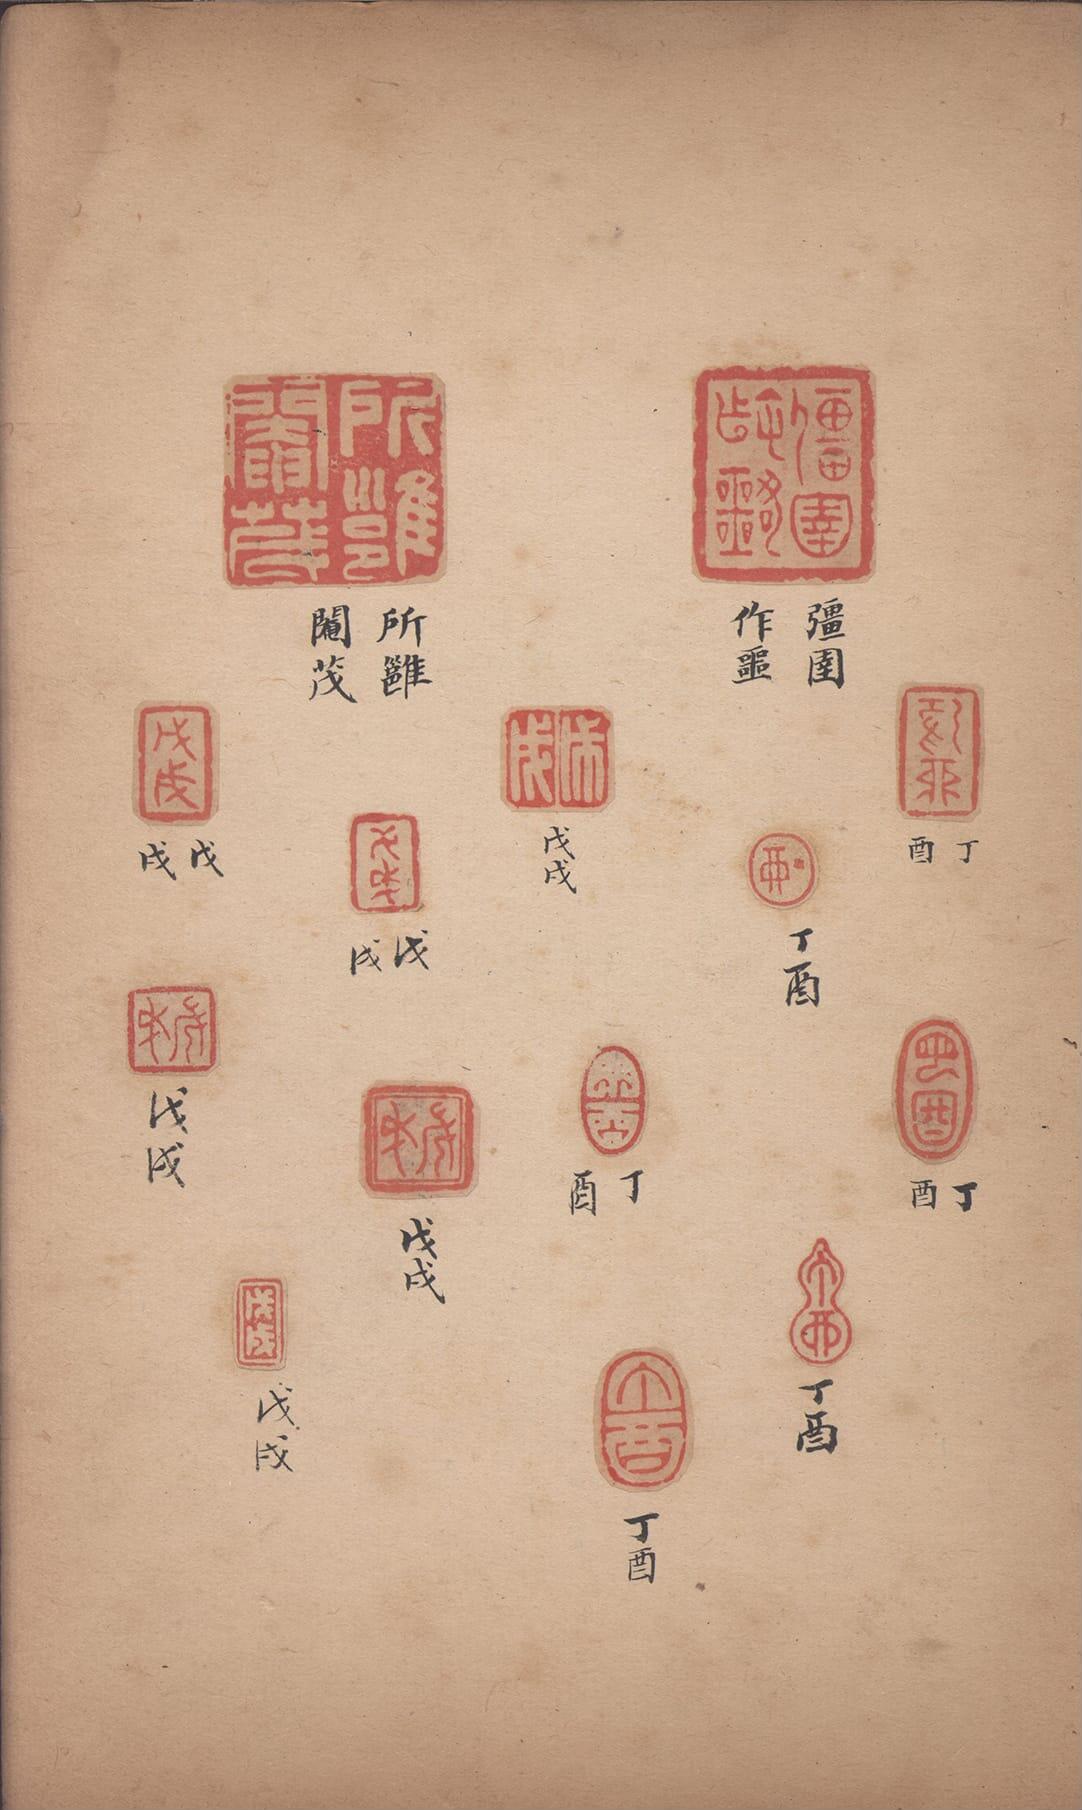 彊圉
作噩
所雝
閹茂
丁酉
丁酉
丁酉
丁酉
丁酉
丁酉
戊戌
戊戌
戊戌
戊戌
戊戌
戊戌